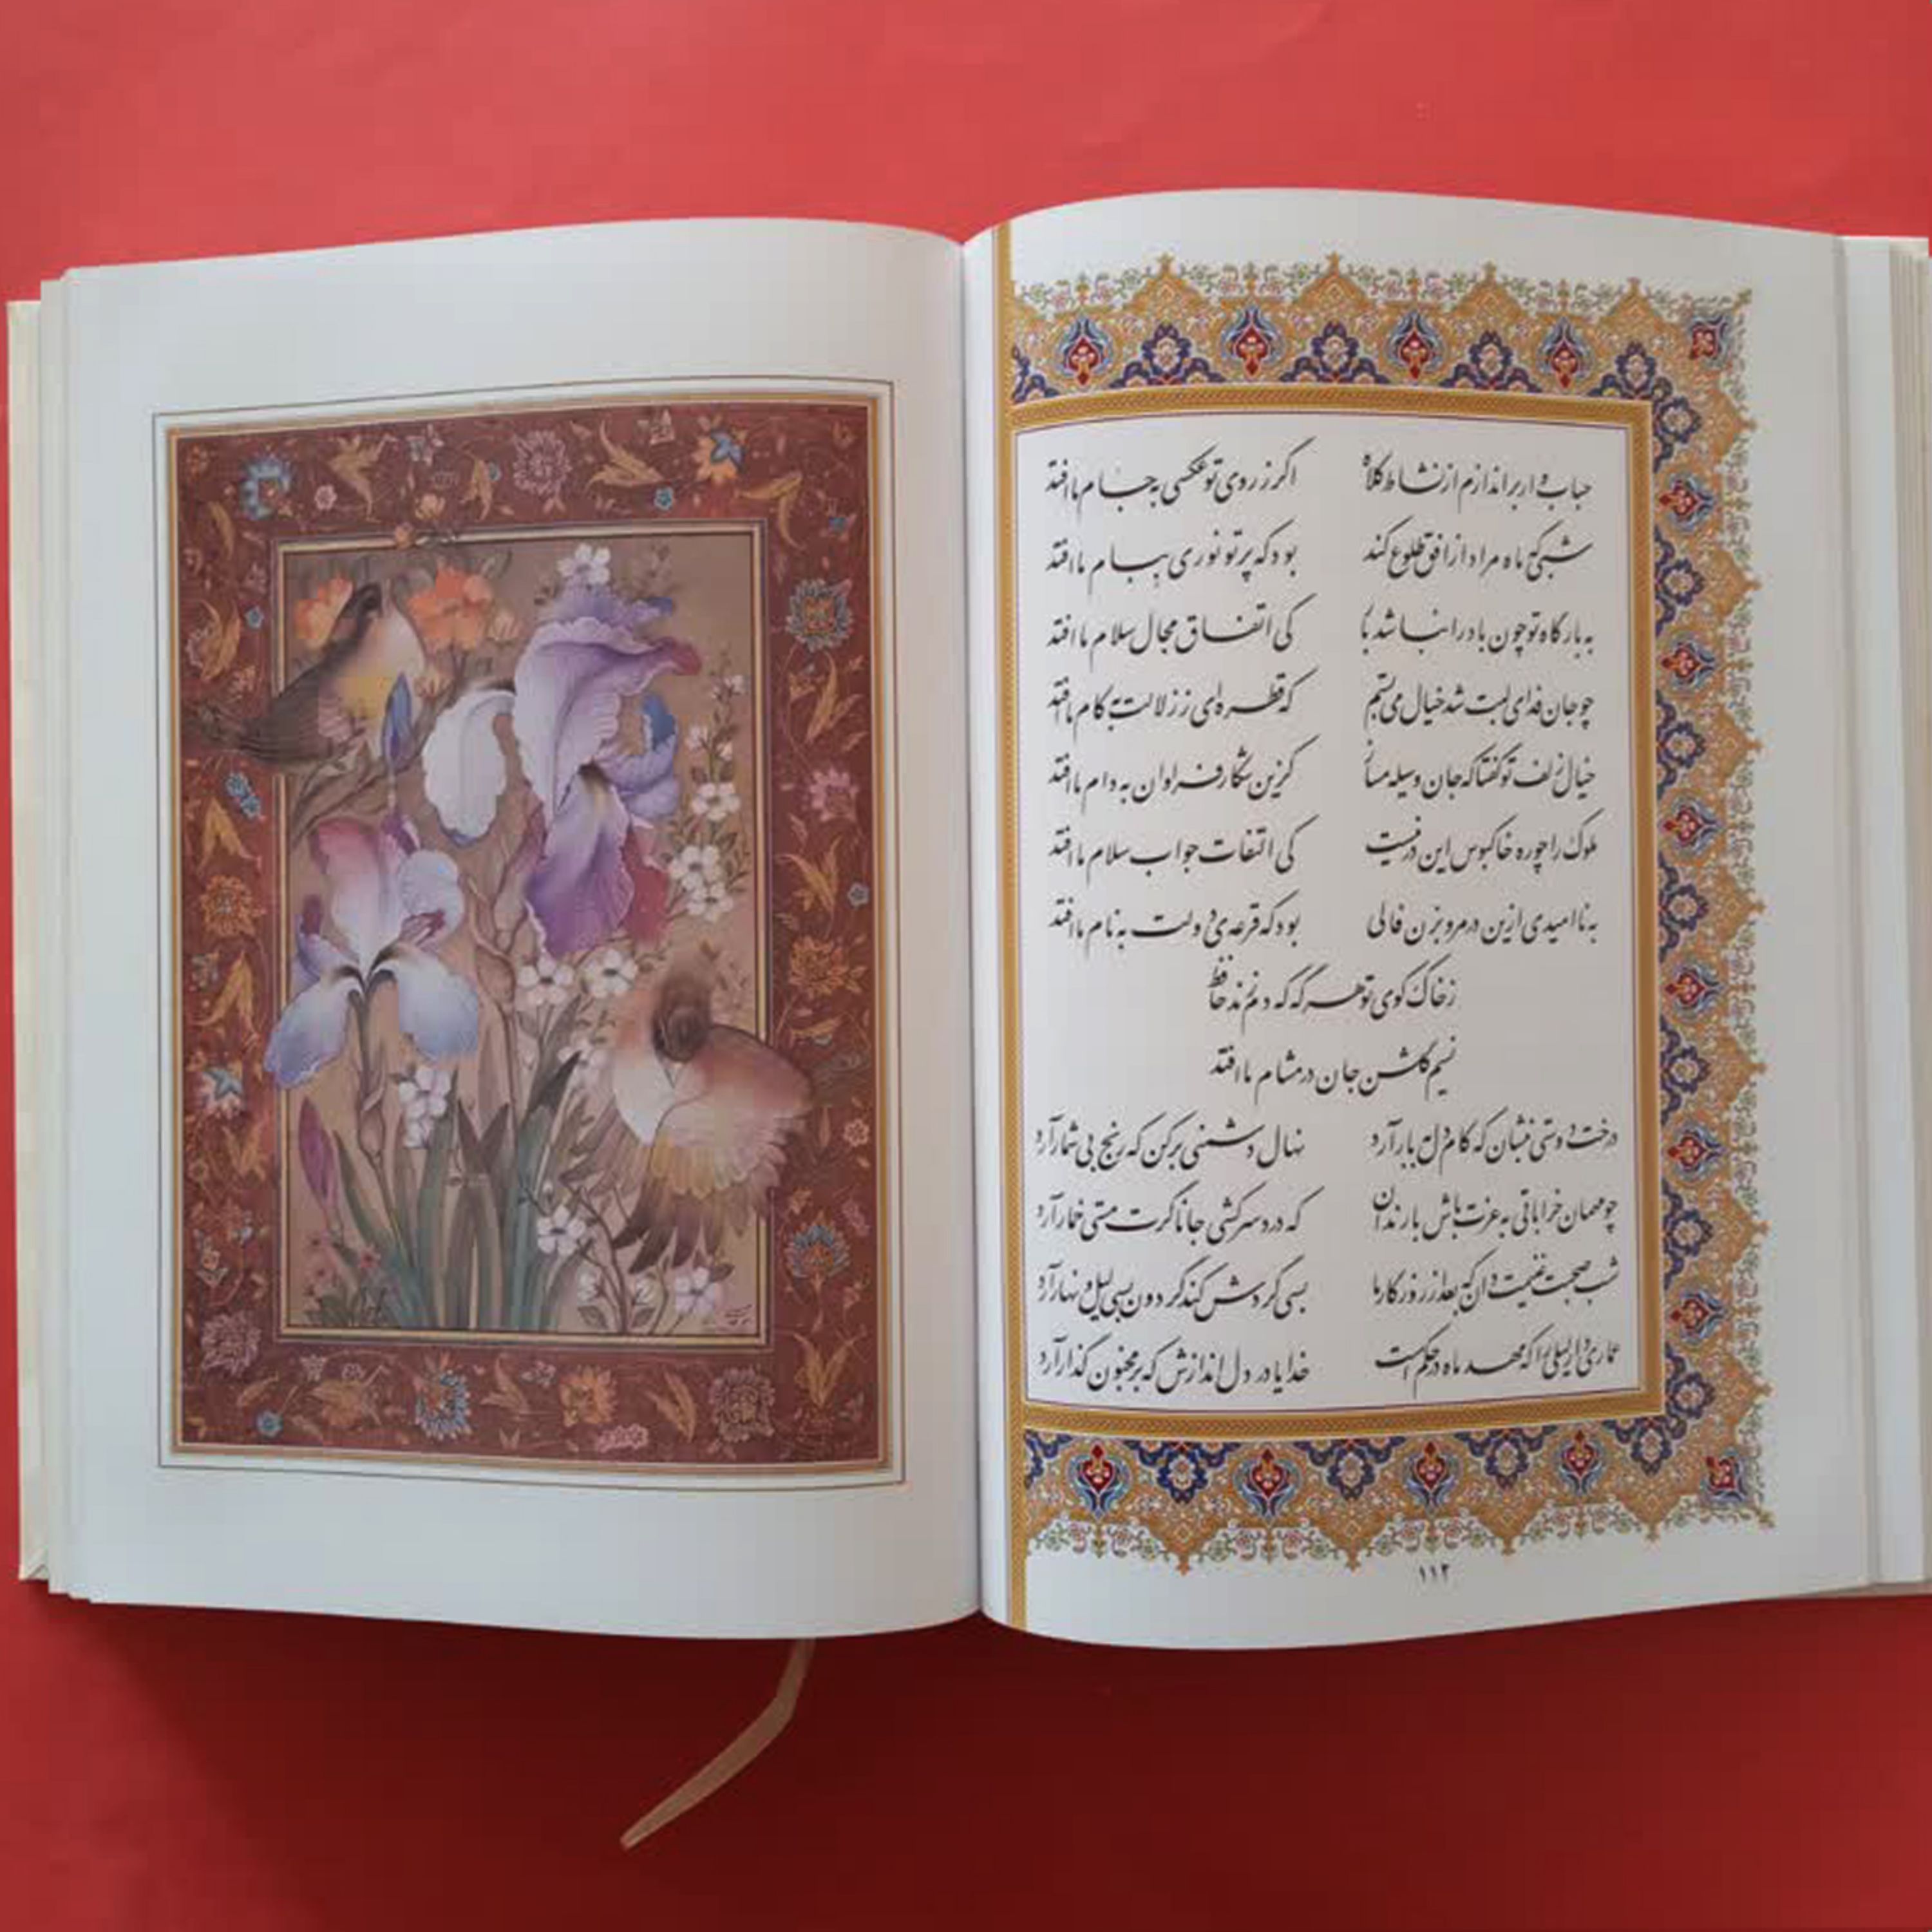 حباب وار براندازم از نشاط کلاه اگر ز روی تو عکسی به جام ما افتد
شبی که ماه مراد از افق طلوع کند بود که پرتو نوری به بام ما افتد
به بارگاه تو چون باد را نباشد بار کی اتفاق مجال سلام ما افتد
چو جان فدای لبت شد خیال می‌بستم که قطره‌ای ز زلالت به کام ما افتد
خیال زلف تو گفتا که جان وسیله مساز کزین شکار فراوان به دام ما افتد
ملوک را چو ره خاکبوس این در نیست کی التفات جواب سلام ما افتد
به ناامیدی ازین در مرو بزن فالی بود که قرعه‌ی دولت به نام ما افتد
ز خاک کوی تو هر گه که دم زند حافظ
نسیم گلشن جان در مشام ما افتد
درخت دوستی بنشان که کام دل به بار آرد نهال دشمنی برکن که رنج بی شمار آرد
چو مهمان خراباتی به عزت باش با رندان که درد سر کشی جانا گرت مستی خمار آرد
شب صحبت غنیمت دان که بعد از روزگار ما بسی گردش کند گردون بسی لیل و نهار آرد
عماری دار لیلی را که مهد ماه در حکم است خدایا در دل اندازش که بر مجنون گذار آرد
۱۱۲